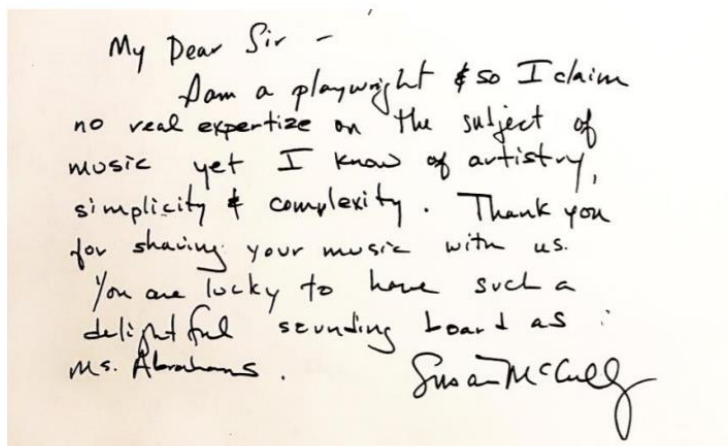 My Dear Sir -
I am a playwright & so I claim
no real expertize on the subject of
music yet I know of artistry,
simplicity & complexity. Thank you
for sharing your music with us.
You are lucky to have such a
delightful sounding board as
Ms. Abrahams.
Susan McCully